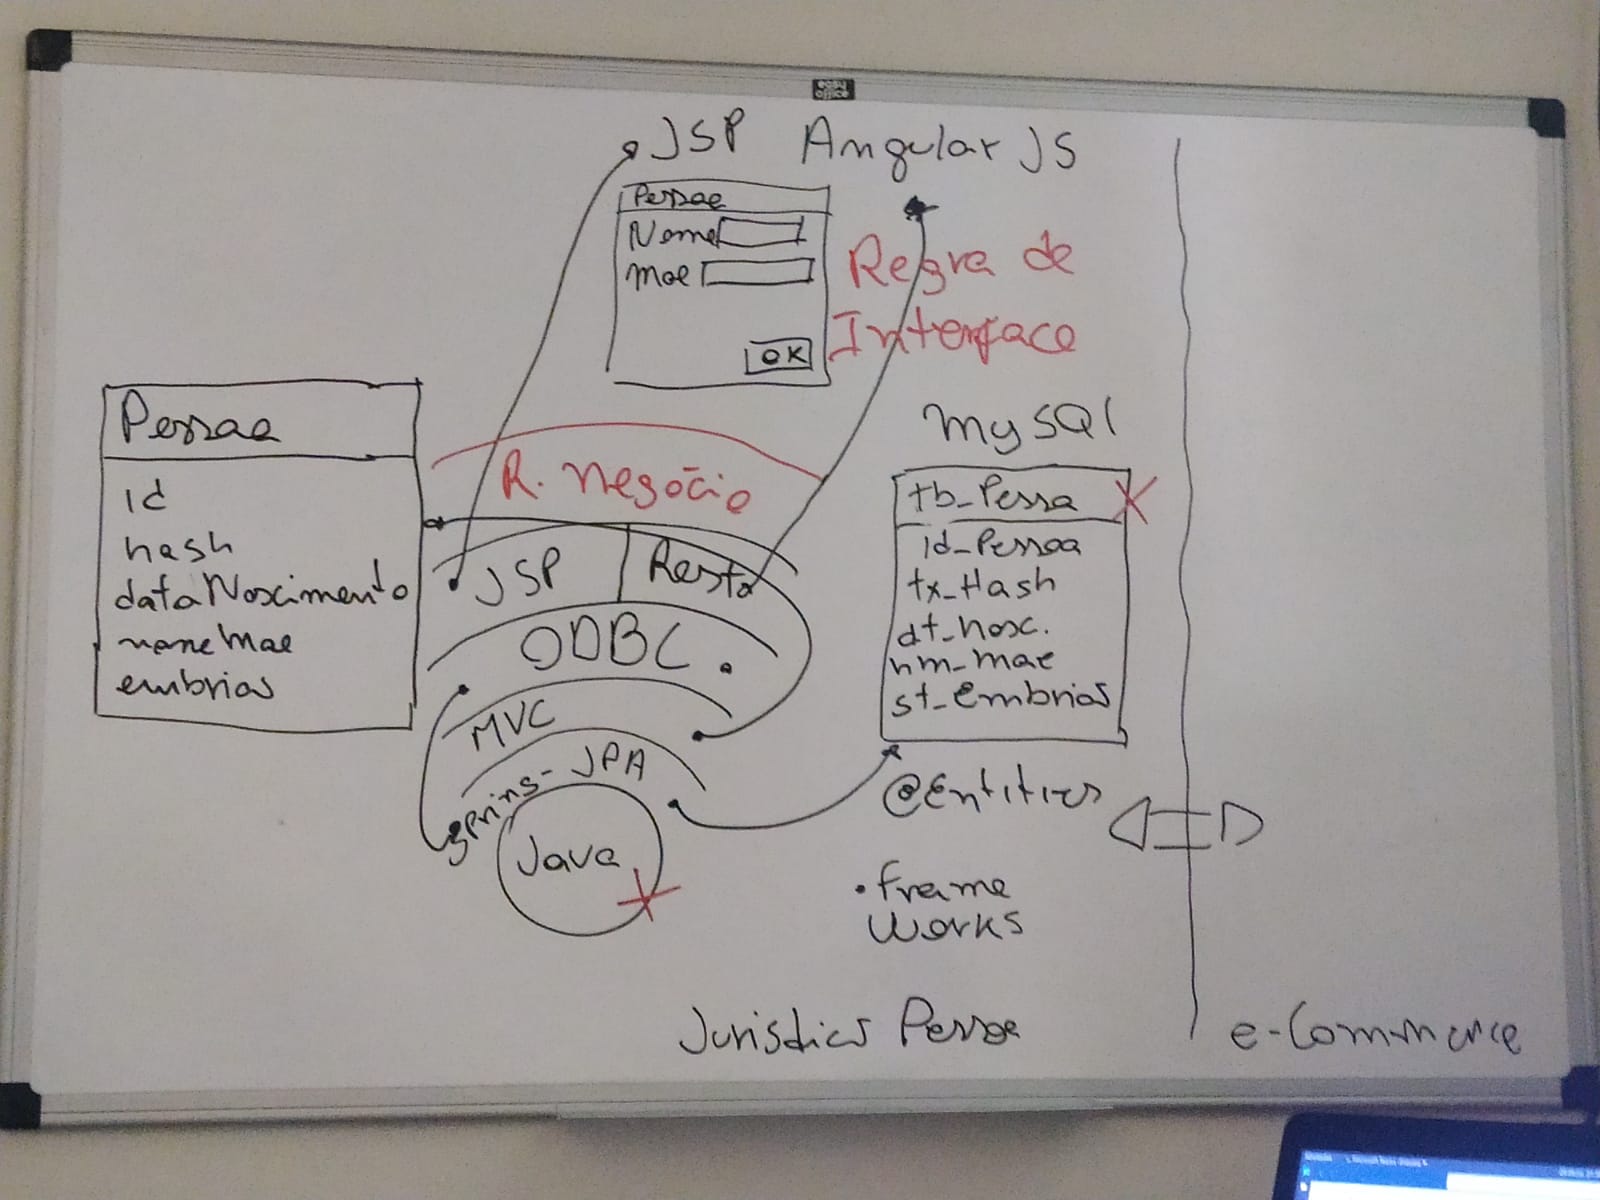 easy
office
JSP Angular JS
Pessoa
Nome
Mae
OK
Regra de
Interface
Pessoa
id
hash
dataNascimento
nomeMae
embrias
R. negócio
JSP
Rest
ODBC
MVC
Spring - JPA
Java
MySQl
tb_Pessoa
id_Pessoa
tx_Hash
dt_nasc.
nm_mae
st_Embrias
@Entities
• frame
works
Pessoa
e-Commerce